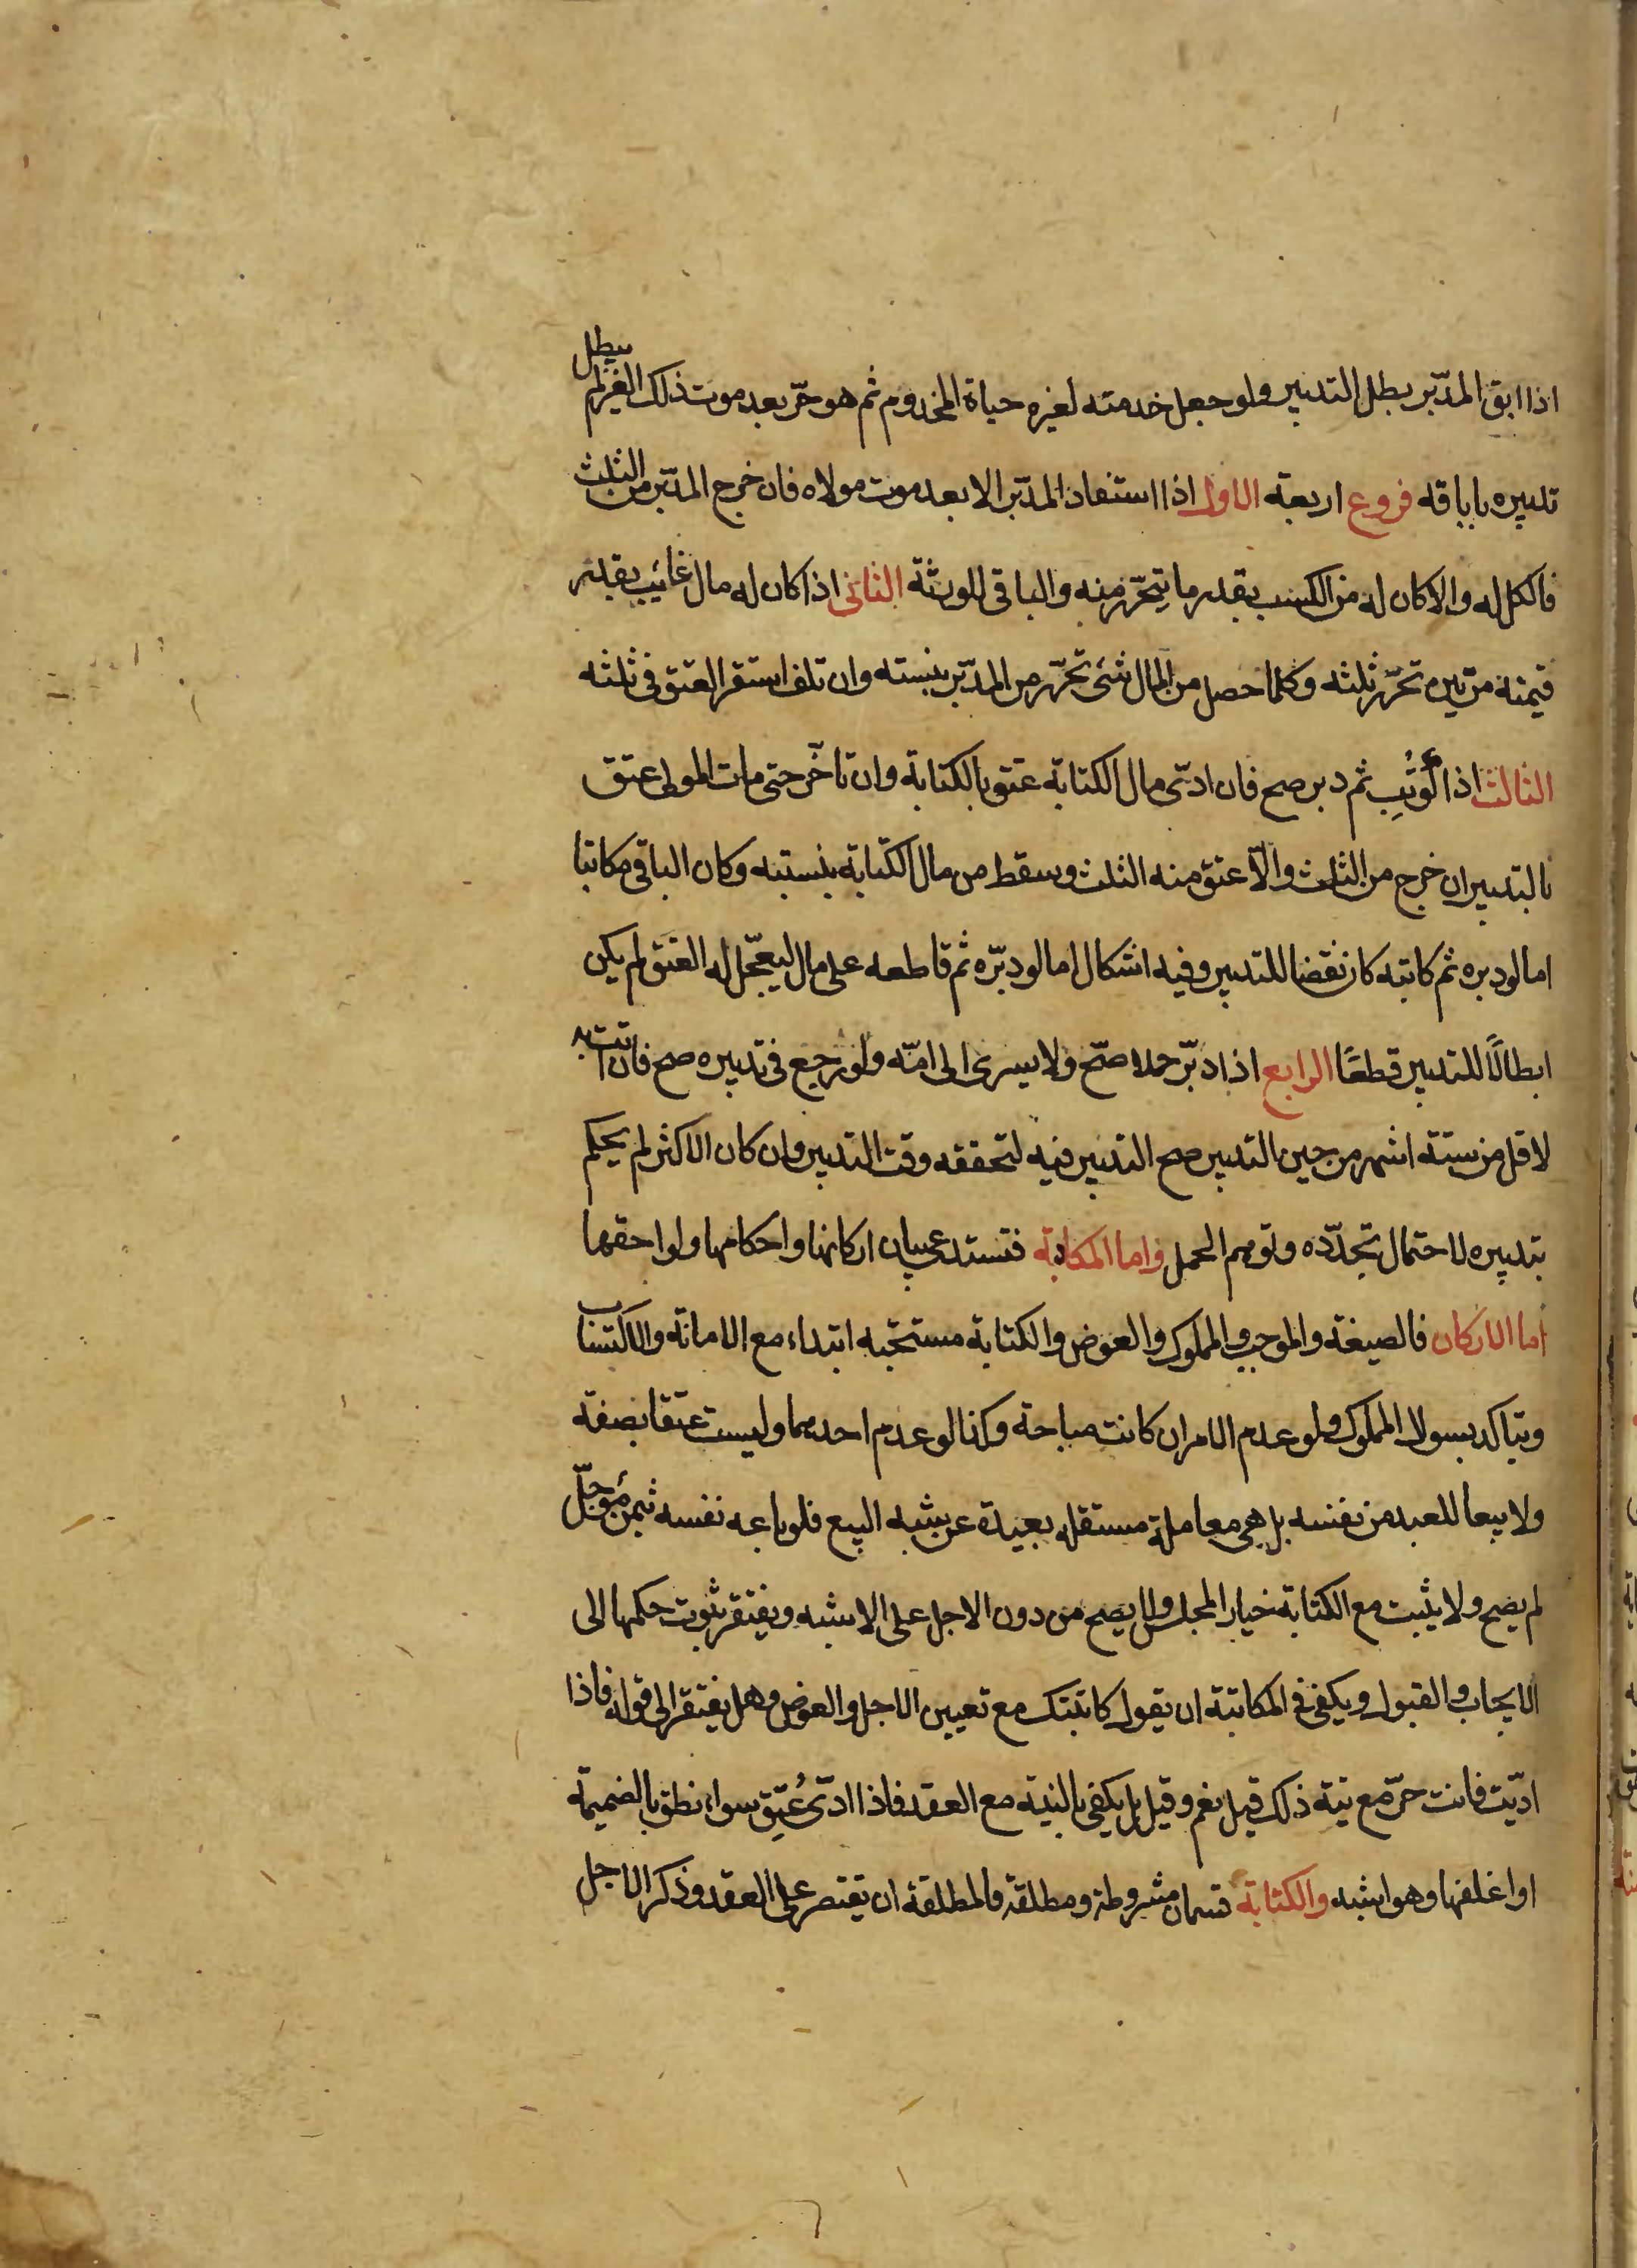 اذا ابق المدبّر بطل التدبير ولو جعل خدمته لغيره حياة المخدوم ثم هو حرّ بعد موت ذلك الغير لم يبطل
تدبيره باباقه فروع اربعة الاول اذا استفاد المدبّر مالا بعد موت مولاه فان خرج المدبّر من الثلث
فالكل له والا كان له من الكسب بقدر ما يتحرّر منه والباقى للورثة الثانى اذا كان له مال غائب بقدر
قيمته مرّتين تحرّر ثلثه وكلما حصل من المال شئ تحرّر من المدبّر بنسبته وان تلف استقر العتق فى ثلثه
الثالث اذا كُوتِب ثم دبر صح فان ادّى مال الكتابة عتق بالكتابة وان تاخّر حتى مات المولى عتق
بالتدبير ان خرج من الثلث والّا عتق منه الثلث وسقط من مال الكتابة بنسبته وكان الباقى مكاتبا
اما لو دبره ثم كاتبه كان نقضا للتدبير وفيه اشكال اما لو دبّره ثم قاطعه على مال ليعجّل له العتق لم يكن
ابطالًا للتدبير قطعًا الرابع اذا دبّر حملا صحّ ولا يسرى الى امّه ولو رجع فى تدبيره صح فان اتت به
لاقل من ستة اشهر من حين التدبير صح التدبير فيه لتحققه وقت التدبير وان كان الاكثر لم يحكم
بتدبيره لاحتمال تجدّده وتوهم الحمل واما المكاتبة فتستدعى بيان اركانها واحكامها ولواحقها
اما الاركان فالصيغة والموجب والمملوك والعوض والكتابة مستحبّه ابتداء مع الامانة والاكتساب
ويتاكد بسوال المملوك ولو عدم الامران كانت مباحة وكذا لو عدم احدهما وليست عتقا بصفة
ولا بيعا للعبد من نفسه بل هى معاملة مستقله بعيدة عن شبه البيع فلو باعه نفسه بثمن مؤجّل
لم يصح ولا يثبت مع الكتابة خيار المجلس ولا يصح من دون الاجل على الاشبه ويفتقر ثبوت حكمها الى
الايجاب والقبول ويكفى فى المكاتبة ان يقول كاتبتك مع تعيين الاجل والعوض وهل يفتقر الى قوله فاذا
ادّيت فانت حرّ مع نيّة ذلك قيل نعم وقيل بل يكفى بالنية مع العقد فاذا ادّى عُتِق سواء نطق بالضميمة
او اغلفها وهو اشبه والكتابة قسمان مشروطة ومطلقة فالمطلقة ان يقتصر على العقد وذكر الاجل